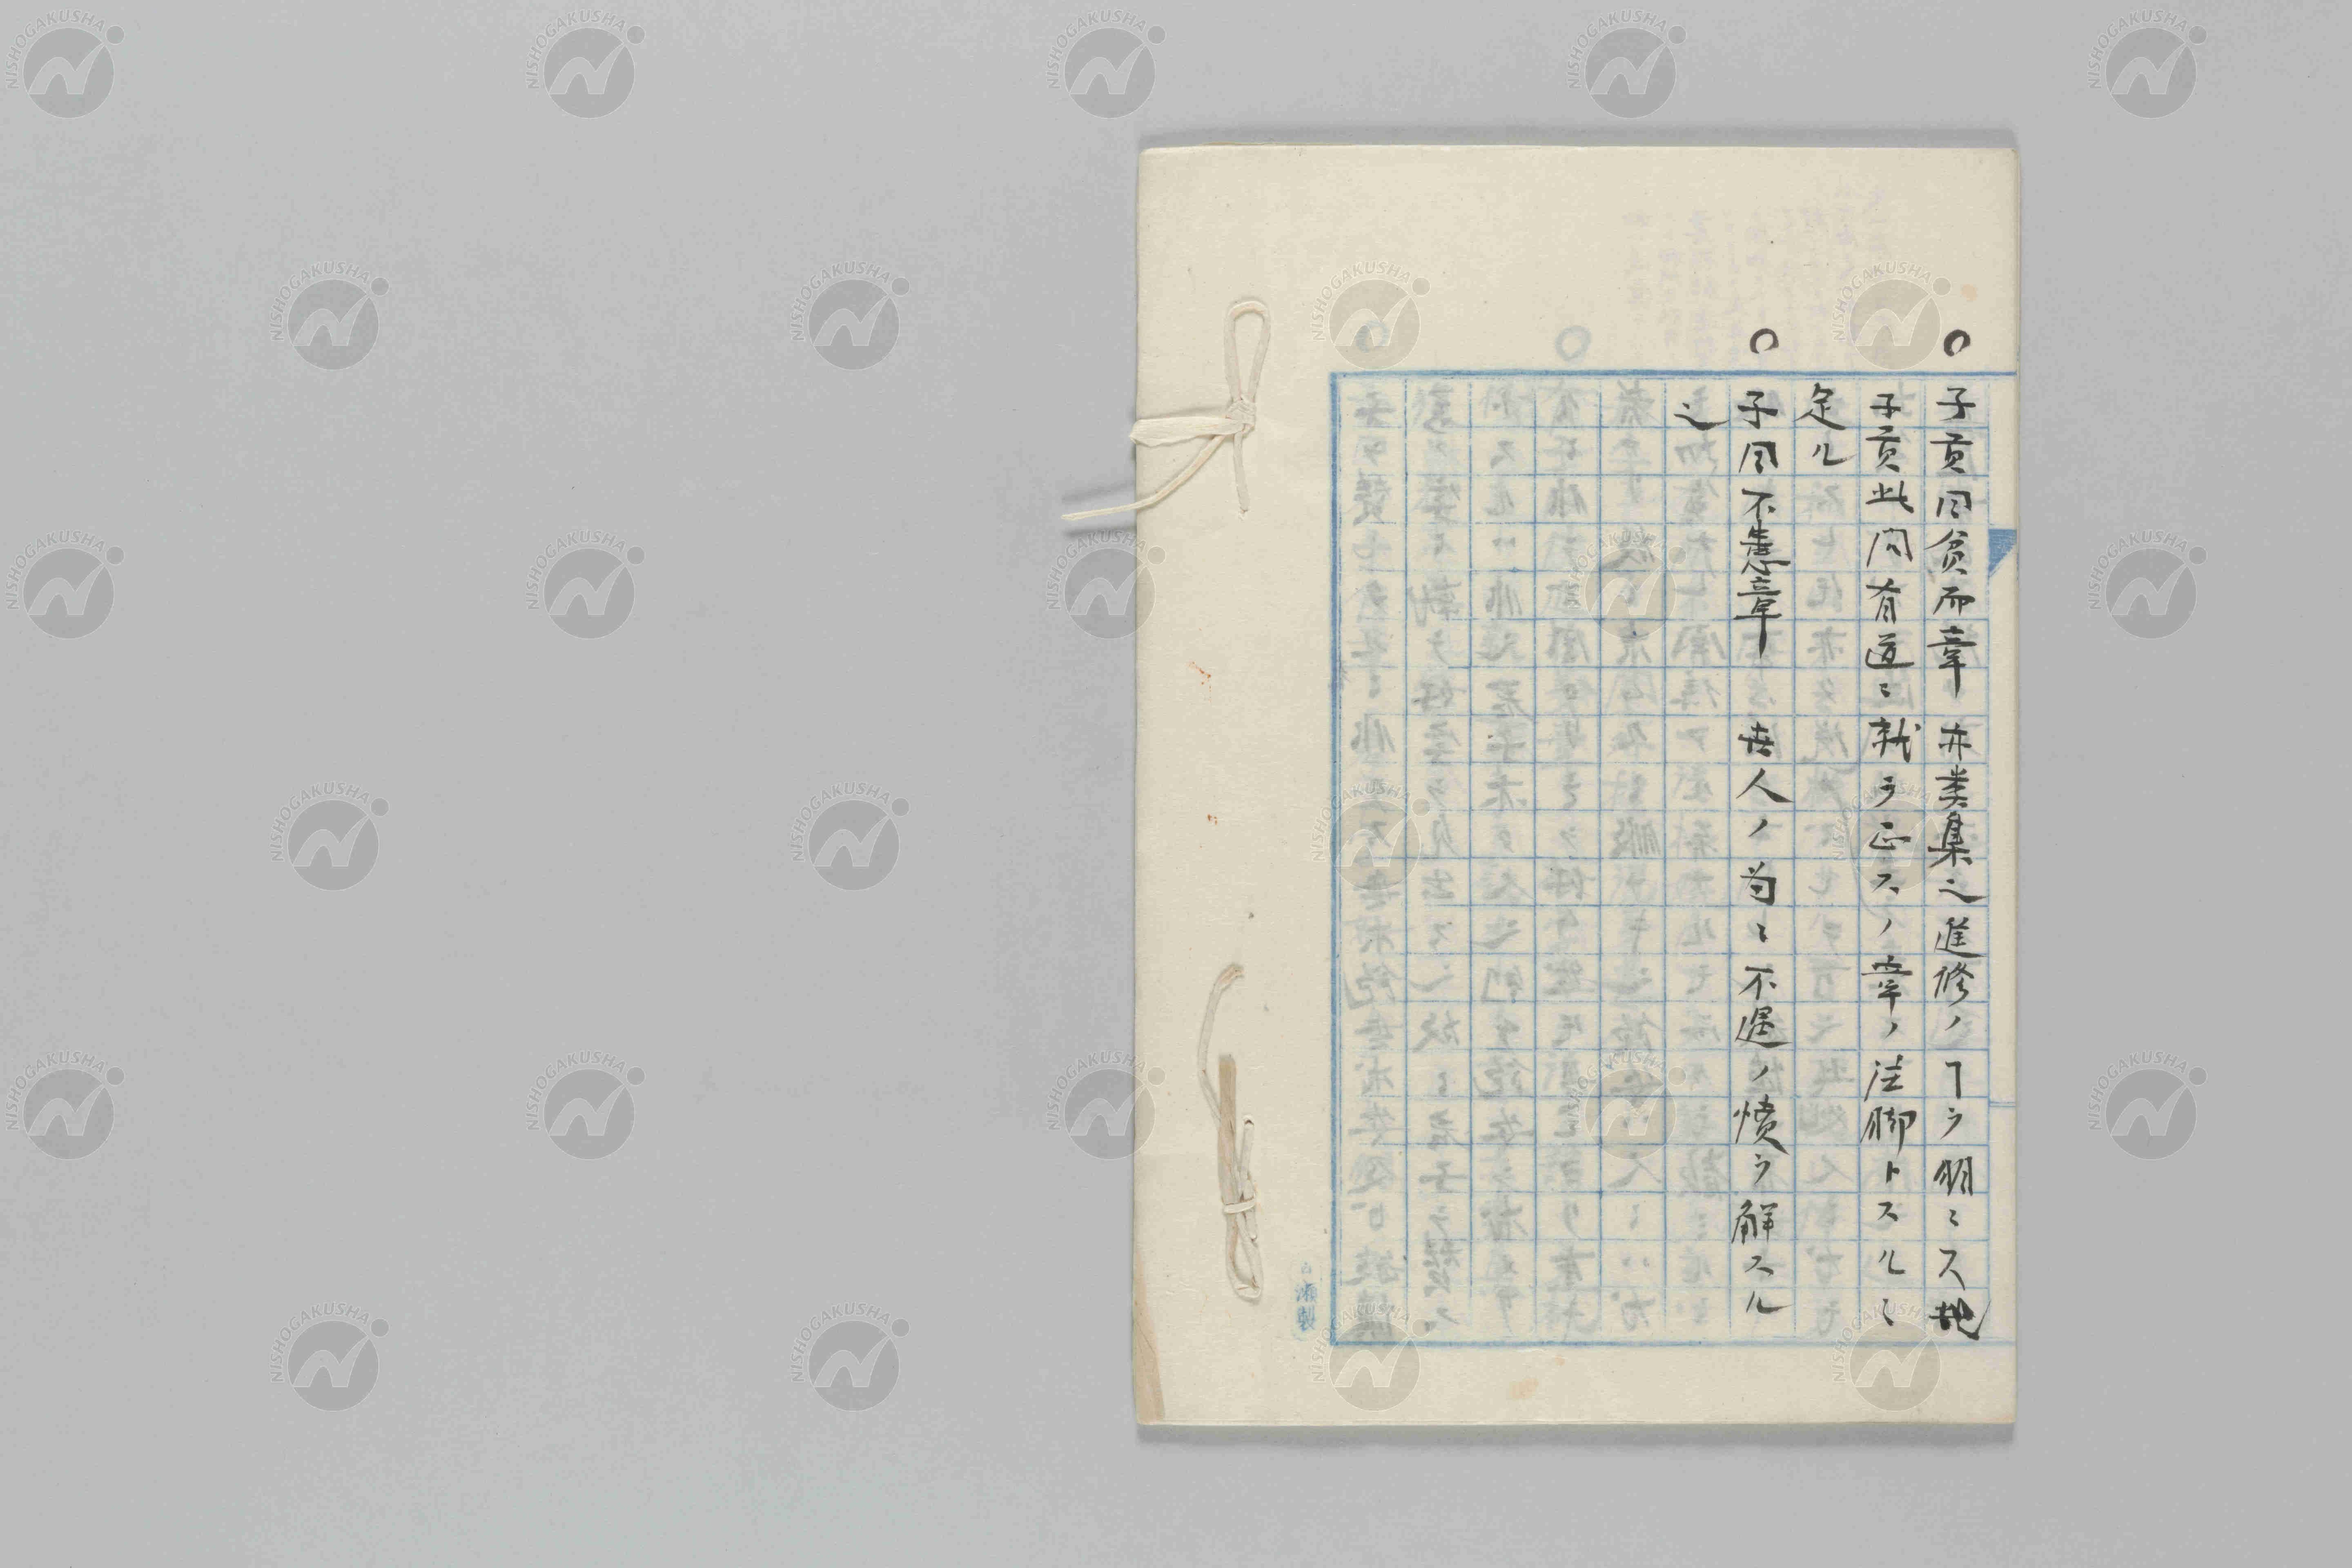 ○子貢曰貧而章 亦类集之進修ノヿヲ明ニス
子貢此問有道ニ就ヲ正スノ章ノ注脚トスルニ
足ル
○子曰不患章 世人ノ為ニ不遇ノ憤ヲ解スル
之